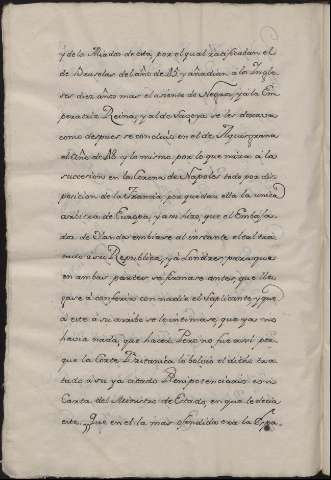 y de los Aliados de ésta, por el qual ratificaban el
de Bruselas del año de 15 y añadian à los Yngle
ses diez años mas el asiento de Negros, y à la Em
peratriz Reina, y al de Saboya se les dexava
como despues se concluió en el de Aquisgrana
el año de 48. y lo mismo, por lo que mira à la
succesion en la Corona de Napoles todo por dis
posicion de la Francia, por quedar ella la unica
arbitra de Europa, y assi hizo, que el Embaja
dor de Olanda embiase al instante el tal tra
tado à su Republica, y à Londres, para que
en ambas partes se firmase antes, que lle
gase à conferir con nadie el Suplicante, y que
à este à su arribo se le intimase, que ya no
havia nada, que hacer. Pero no fue assi por
que la Corte Britanica le bolvió el dicho tra
tado à su ya citado Plenipotenciario con
Carta del Ministro de Estado, en que le decia
este. Que en el la mas ofendida era la Espa